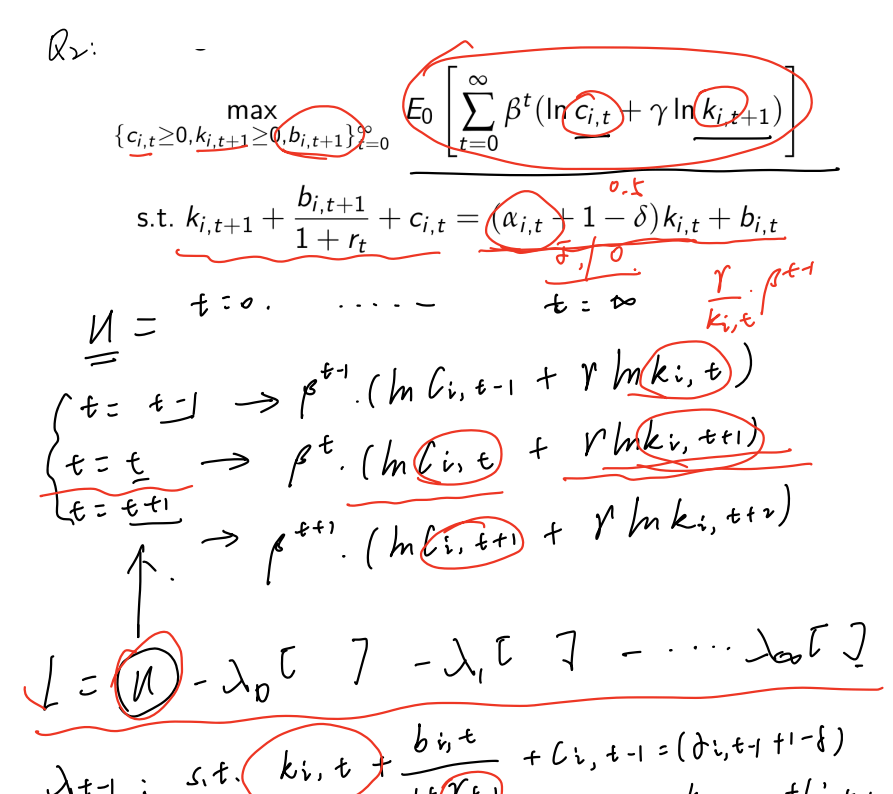 Q2: -
max {c_{i,t}≥0,k_{i,t+1}≥0,b_{i,t+1}}_{t=0}^{∞} E_0 [ ∑_{t=0}^{∞} β^t (ln c_{i,t} + γ ln k_{i,t+1}) ]
0.5
s.t. k_{i,t+1} + b_{i,t+1}/(1 + r_t) + c_{i,t} = (α_{i,t} + 1 − δ)k_{i,t} + b_{i,t}
t=0. ..... t=∞ γ/k_{i,t} · β^{t-1}
u =
t= t-1 → β^{t-1}.(ln C_{i,t-1} + γ ln k_{i,t})
t= t → β^t.(ln C_{i,t} + γ ln k_{i,t+1})
t= t+1 → β^{t+1}.(ln C_{i,t+1} + γ ln k_{i,t+2})
L = u - λ_0 [ ] - λ_1 [ ] - ..... λ_∞ [ ]
λ_{t-1}: s.t. k_{i,t} + b_{i,t} + C_{i,t-1} = (α_{i,t-1}+1-δ)